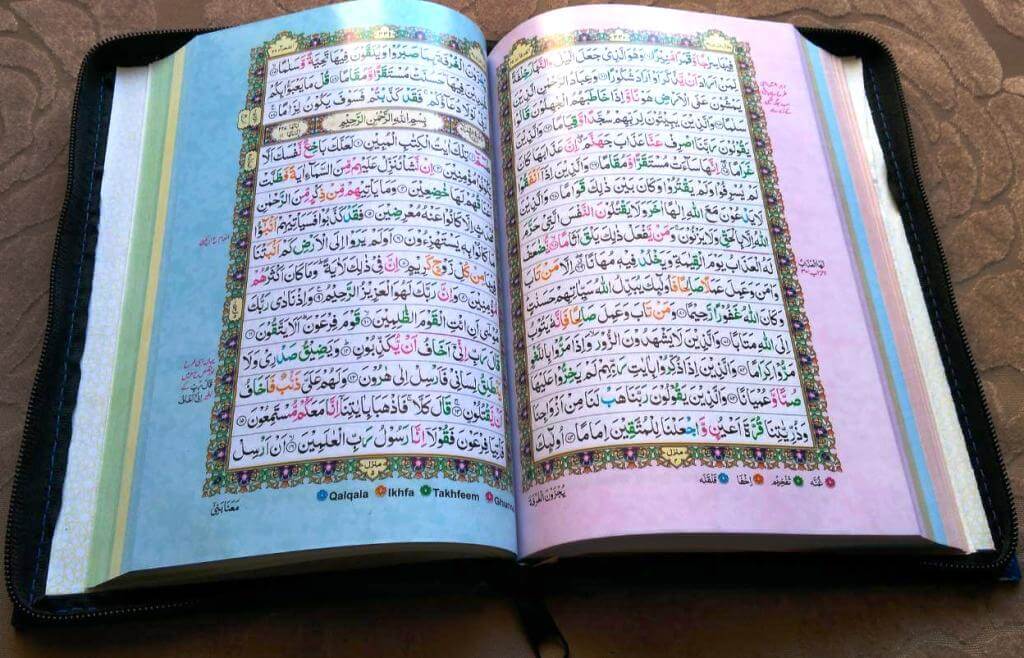 فِيهَا سِرٰجًا وَّقَمَرًا مُّنِيْرًا وَهُوَ الَّذِيْ جَعَلَ الَّيْلَ وَالنَّهَارَ خِلْفَةً
لِّمَنْ اَرَادَ اَنْ يَّذَّكَّرَ اَوْ اَرَادَ شُكُوْرًا وَعِبَادُ الرَّحْمٰنِ الَّذِيْنَ
يَمْشُوْنَ عَلَى الْاَرْضِ هَوْنًا وَّاِذَا خَاطَبَهُمُ الْجٰهِلُوْنَ قَالُوْا
سَلٰمًا وَالَّذِيْنَ يَبِيْتُوْنَ لِرَبِّهِمْ سُجَّدًا وَّقِيَامًا وَالَّذِيْنَ
يَقُوْلُوْنَ رَبَّنَا اصْرِفْ عَنَّا عَذَابَ جَهَنَّمَ اِنَّ عَذَابَهَا كَانَ
غَرَامًا اِنَّهَا سَآءَتْ مُسْتَقَرًّا وَّمُقَامًا وَالَّذِيْنَ اِذَآ اَنْفَقُوْا
لَمْ يُسْرِفُوْا وَلَمْ يَقْتُرُوْا وَكَانَ بَيْنَ ذٰلِكَ قَوَامًا وَالَّذِيْنَ
لَا يَدْعُوْنَ مَعَ اللّٰهِ اِلٰهًا اٰخَرَ وَلَا يَقْتُلُوْنَ النَّفْسَ الَّتِيْ حَرَّمَ
اللّٰهُ اِلَّا بِالْحَقِّ وَلَا يَزْنُوْنَ وَمَنْ يَّفْعَلْ ذٰلِكَ يَلْقَ اَثَامًا يُّضٰعَفْ
لَهُ الْعَذَابُ يَوْمَ الْقِيٰمَةِ وَيَخْلُدْ فِيْهٖ مُهَانًا اِلَّا مَنْ تَابَ
وَاٰمَنَ وَعَمِلَ عَمَلًا صَالِحًا فَاُولٰٓئِكَ يُبَدِّلُ اللّٰهُ سَيِّاٰتِهِمْ حَسَنٰتٍ
وَكَانَ اللّٰهُ غَفُوْرًا رَّحِيْمًا وَمَنْ تَابَ وَعَمِلَ صَالِحًا فَاِنَّهٗ يَتُوْبُ
اِلَى اللّٰهِ مَتَابًا وَالَّذِيْنَ لَا يَشْهَدُوْنَ الزُّوْرَ وَاِذَا مَرُّوْا بِاللَّغْوِ
مَرُّوْا كِرَامًا وَالَّذِيْنَ اِذَا ذُكِّرُوْا بِاٰيٰتِ رَبِّهِمْ لَمْ يَخِرُّوْا عَلَيْهَا
صُمًّا وَّعُمْيَانًا وَالَّذِيْنَ يَقُوْلُوْنَ رَبَّنَا هَبْ لَنَا مِنْ اَزْوَاجِنَا
وَذُرِّيّٰتِنَا قُرَّةَ اَعْيُنٍ وَّاجْعَلْنَا لِلْمُتَّقِيْنَ اِمَامًا اُولٰٓئِكَ
غُنَّه تَفْخِيْم اِخْفَا قَلْقَلَه
يُجْزَوْنَ الْغُرْفَةَ
يُجْزَوْنَ الْغُرْفَةَ بِمَا صَبَرُوْا وَيُلَقَّوْنَ فِيْهَا تَحِيَّةً وَّسَلٰمًا
خٰلِدِيْنَ فِيْهَا حَسُنَتْ مُسْتَقَرًّا وَّمُقَامًا قُلْ مَا يَعْبَؤُا بِكُمْ
رَبِّيْ لَوْلَا دُعَآؤُكُمْ فَقَدْ كَذَّبْتُمْ فَسَوْفَ يَكُوْنُ لِزَامًا
بِسْمِ اللّٰهِ الرَّحْمٰنِ الرَّحِيْمِ
طٰسٓمّٓ تِلْكَ اٰيٰتُ الْكِتٰبِ الْمُبِيْنِ لَعَلَّكَ بَاخِعٌ نَّفْسَكَ اَلَّا
يَكُوْنُوْا مُؤْمِنِيْنَ اِنْ نَّشَاْ نُنَزِّلْ عَلَيْهِمْ مِّنَ السَّمَآءِ اٰيَةً فَظَلَّتْ
اَعْنَاقُهُمْ لَهَا خٰضِعِيْنَ وَمَا يَاْتِيْهِمْ مِّنْ ذِكْرٍ مِّنَ الرَّحْمٰنِ
مُحْدَثٍ اِلَّا كَانُوْا عَنْهُ مُعْرِضِيْنَ فَقَدْ كَذَّبُوْا فَسَيَاْتِيْهِمْ اَنْۢبٰٓؤُا
مَا كَانُوْا بِهٖ يَسْتَهْزِءُوْنَ اَوَلَمْ يَرَوْا اِلَى الْاَرْضِ كَمْ اَنْۢبَتْنَا
فِيْهَا مِنْ كُلِّ زَوْجٍ كَرِيْمٍ اِنَّ فِيْ ذٰلِكَ لَاٰيَةً وَمَا كَانَ اَكْثَرُهُمْ
مُّؤْمِنِيْنَ وَاِنَّ رَبَّكَ لَهُوَ الْعَزِيْزُ الرَّحِيْمُ وَاِذْ نَادٰى رَبُّكَ
مُوْسٰٓى اَنِ ائْتِ الْقَوْمَ الظّٰلِمِيْنَ قَوْمَ فِرْعَوْنَ اَلَا يَتَّقُوْنَ
قَالَ رَبِّ اِنِّيْٓ اَخَافُ اَنْ يُّكَذِّبُوْنِ وَيَضِيْقُ صَدْرِيْ وَلَا
يَنْطَلِقُ لِسَانِيْ فَاَرْسِلْ اِلٰى هٰرُوْنَ وَلَهُمْ عَلَيَّ ذَنْۢبٌ فَاَخَافُ
اَنْ يَّقْتُلُوْنِ قَالَ كَلَّا فَاذْهَبَا بِاٰيٰتِنَآ اِنَّا مَعَكُمْ مُّسْتَمِعُوْنَ
فَاْتِيَا فِرْعَوْنَ فَقُوْلَآ اِنَّا رَسُوْلُ رَبِّ الْعٰلَمِيْنَ اَنْ اَرْسِلْ
Qalqala Ikhfa Takhfeem
مَعَنَا بَنِيْٓ